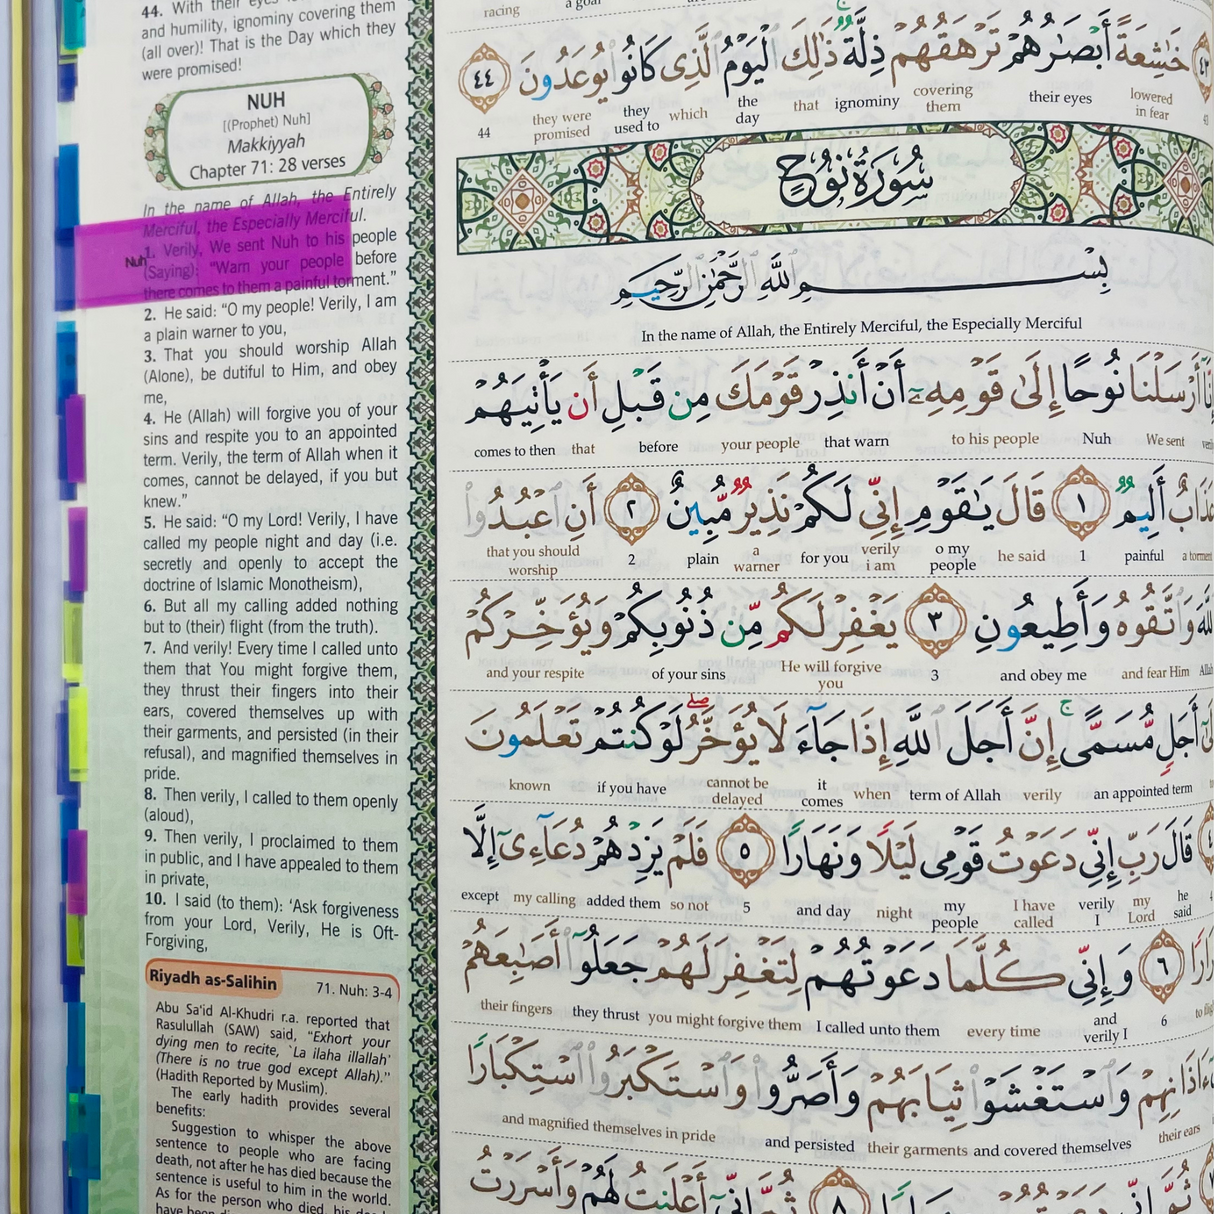 44. With their eyes
and humility, ignominy covering them
(all over)! That is the Day which they
were promised!
NUH
[(Prophet) Nuh]
Makkiyyah
Chapter 71: 28 verses
In the name of Allah, the Entirely
Merciful, the Especially Merciful.
1. Verily, We sent Nuh to his people
Nuh
(Saying): "Warn your people before
there comes to them a painful torment."
2. He said: "O my people! Verily, I am
a plain warner to you,
3. That you should worship Allah
(Alone), be dutiful to Him, and obey
me,
4. He (Allah) will forgive you of your
sins and respite you to an appointed
term. Verily, the term of Allah when it
comes, cannot be delayed, if you but
knew."
5. He said: "O my Lord! Verily, I have
called my people night and day (i.e.
secretly and openly to accept the
doctrine of Islamic Monotheism),
6. But all my calling added nothing
but to (their) flight (from the truth).
7. And verily! Every time I called unto
them that You might forgive them,
they thrust their fingers into their
ears, covered themselves up with
their garments, and persisted (in their
refusal), and magnified themselves in
pride.
8. Then verily, I called to them openly
(aloud),
9. Then verily, I proclaimed to them
in public, and I have appealed to them
in private,
10. I said (to them): 'Ask forgiveness
from your Lord, Verily, He is Oft-
Forgiving,
Riyadh as-Salihin 71. Nuh: 3-4
Abu Sa'id Al-Khudri r.a. reported that
Rasulullah (SAW) said, "Exhort your
dying men to recite, `La ilaha illallah'
(There is no true god except Allah)."
(Hadith Reported by Muslim).
The early hadith provides several
benefits:
Suggestion to whisper the above
sentence to people who are facing
death, not after he has died because the
sentence is useful to him in the world.
As for the person who died, his
have been
racing a goal
خَٰشِعَةً أَبْصَٰرُهُمْ تَرْهَقُهُمْ ذِلَّةٌ ذَٰلِكَ ٱلْيَوْمُ ٱلَّذِى كَانُوا۟ يُوعَدُونَ ٤٤
lowered in fear their eyes covering them ignominy that the day which they used to they were promised 44
سُورَةُ نُوحٍ
بِسْمِ ٱللَّهِ ٱلرَّحْمَٰنِ ٱلرَّحِيمِ
In the name of Allah, the Entirely Merciful, the Especially Merciful
إِنَّآ أَرْسَلْنَا نُوحًا إِلَىٰ قَوْمِهِۦٓ أَنْ أَنذِرْ قَوْمَكَ مِن قَبْلِ أَن يَأْتِيَهُمْ
We sent Nuh to his people that warn your people before that comes to then
عَذَابٌ أَلِيمٌ ١ قَالَ يَٰقَوْمِ إِنِّى لَكُمْ نَذِيرٌ مُّبِينٌ ٢ أَنِ ٱعْبُدُوا۟
a torment painful 1 he said o my people verily i am for you a warner plain 2 that you should worship
ٱللَّهَ وَٱتَّقُوهُ وَأَطِيعُونِ ٣ يَغْفِرْ لَكُم مِّن ذُنُوبِكُمْ وَيُؤَخِّرْكُمْ
Allah and fear Him and obey me 3 He will forgive you of your sins and respite
أَجَلٍ مُّسَمًّى إِنَّ أَجَلَ ٱللَّهِ إِذَا جَآءَ لَا يُؤَخَّرُ لَوْ كُنتُمْ تَعْلَمُونَ
an appointed term verily term of Allah when it comes cannot be delayed if you have known
قَالَ رَبِّ إِنِّى دَعَوْتُ قَوْمِى لَيْلًا وَنَهَارًا ٥ فَلَمْ يَزِدْهُمْ دُعَآءِىٓ إِلَّا
he said my Lord verily I I have called my people night and day 5 so not added them my calling except
٦ وَإِنِّى كُلَّمَا دَعَوْتُهُمْ لِتَغْفِرَ لَهُمْ جَعَلُوٓا۟ أَصَٰبِعَهُمْ
6 and verily I every time I called unto them you might forgive them they thrust their fingers
ءَاذَانِهِمْ وَٱسْتَغْشَوْا۟ ثِيَابَهُمْ وَأَصَرُّوا۟ وَٱسْتَكْبَرُوا۟ ٱسْتِكْبَارًا
their ears and covered themselves their garments and persisted and magnified themselves in pride
٨ ثُمَّ إِنِّىٓ أَعْلَنتُ لَهُمْ وَأَسْرَرْتُ